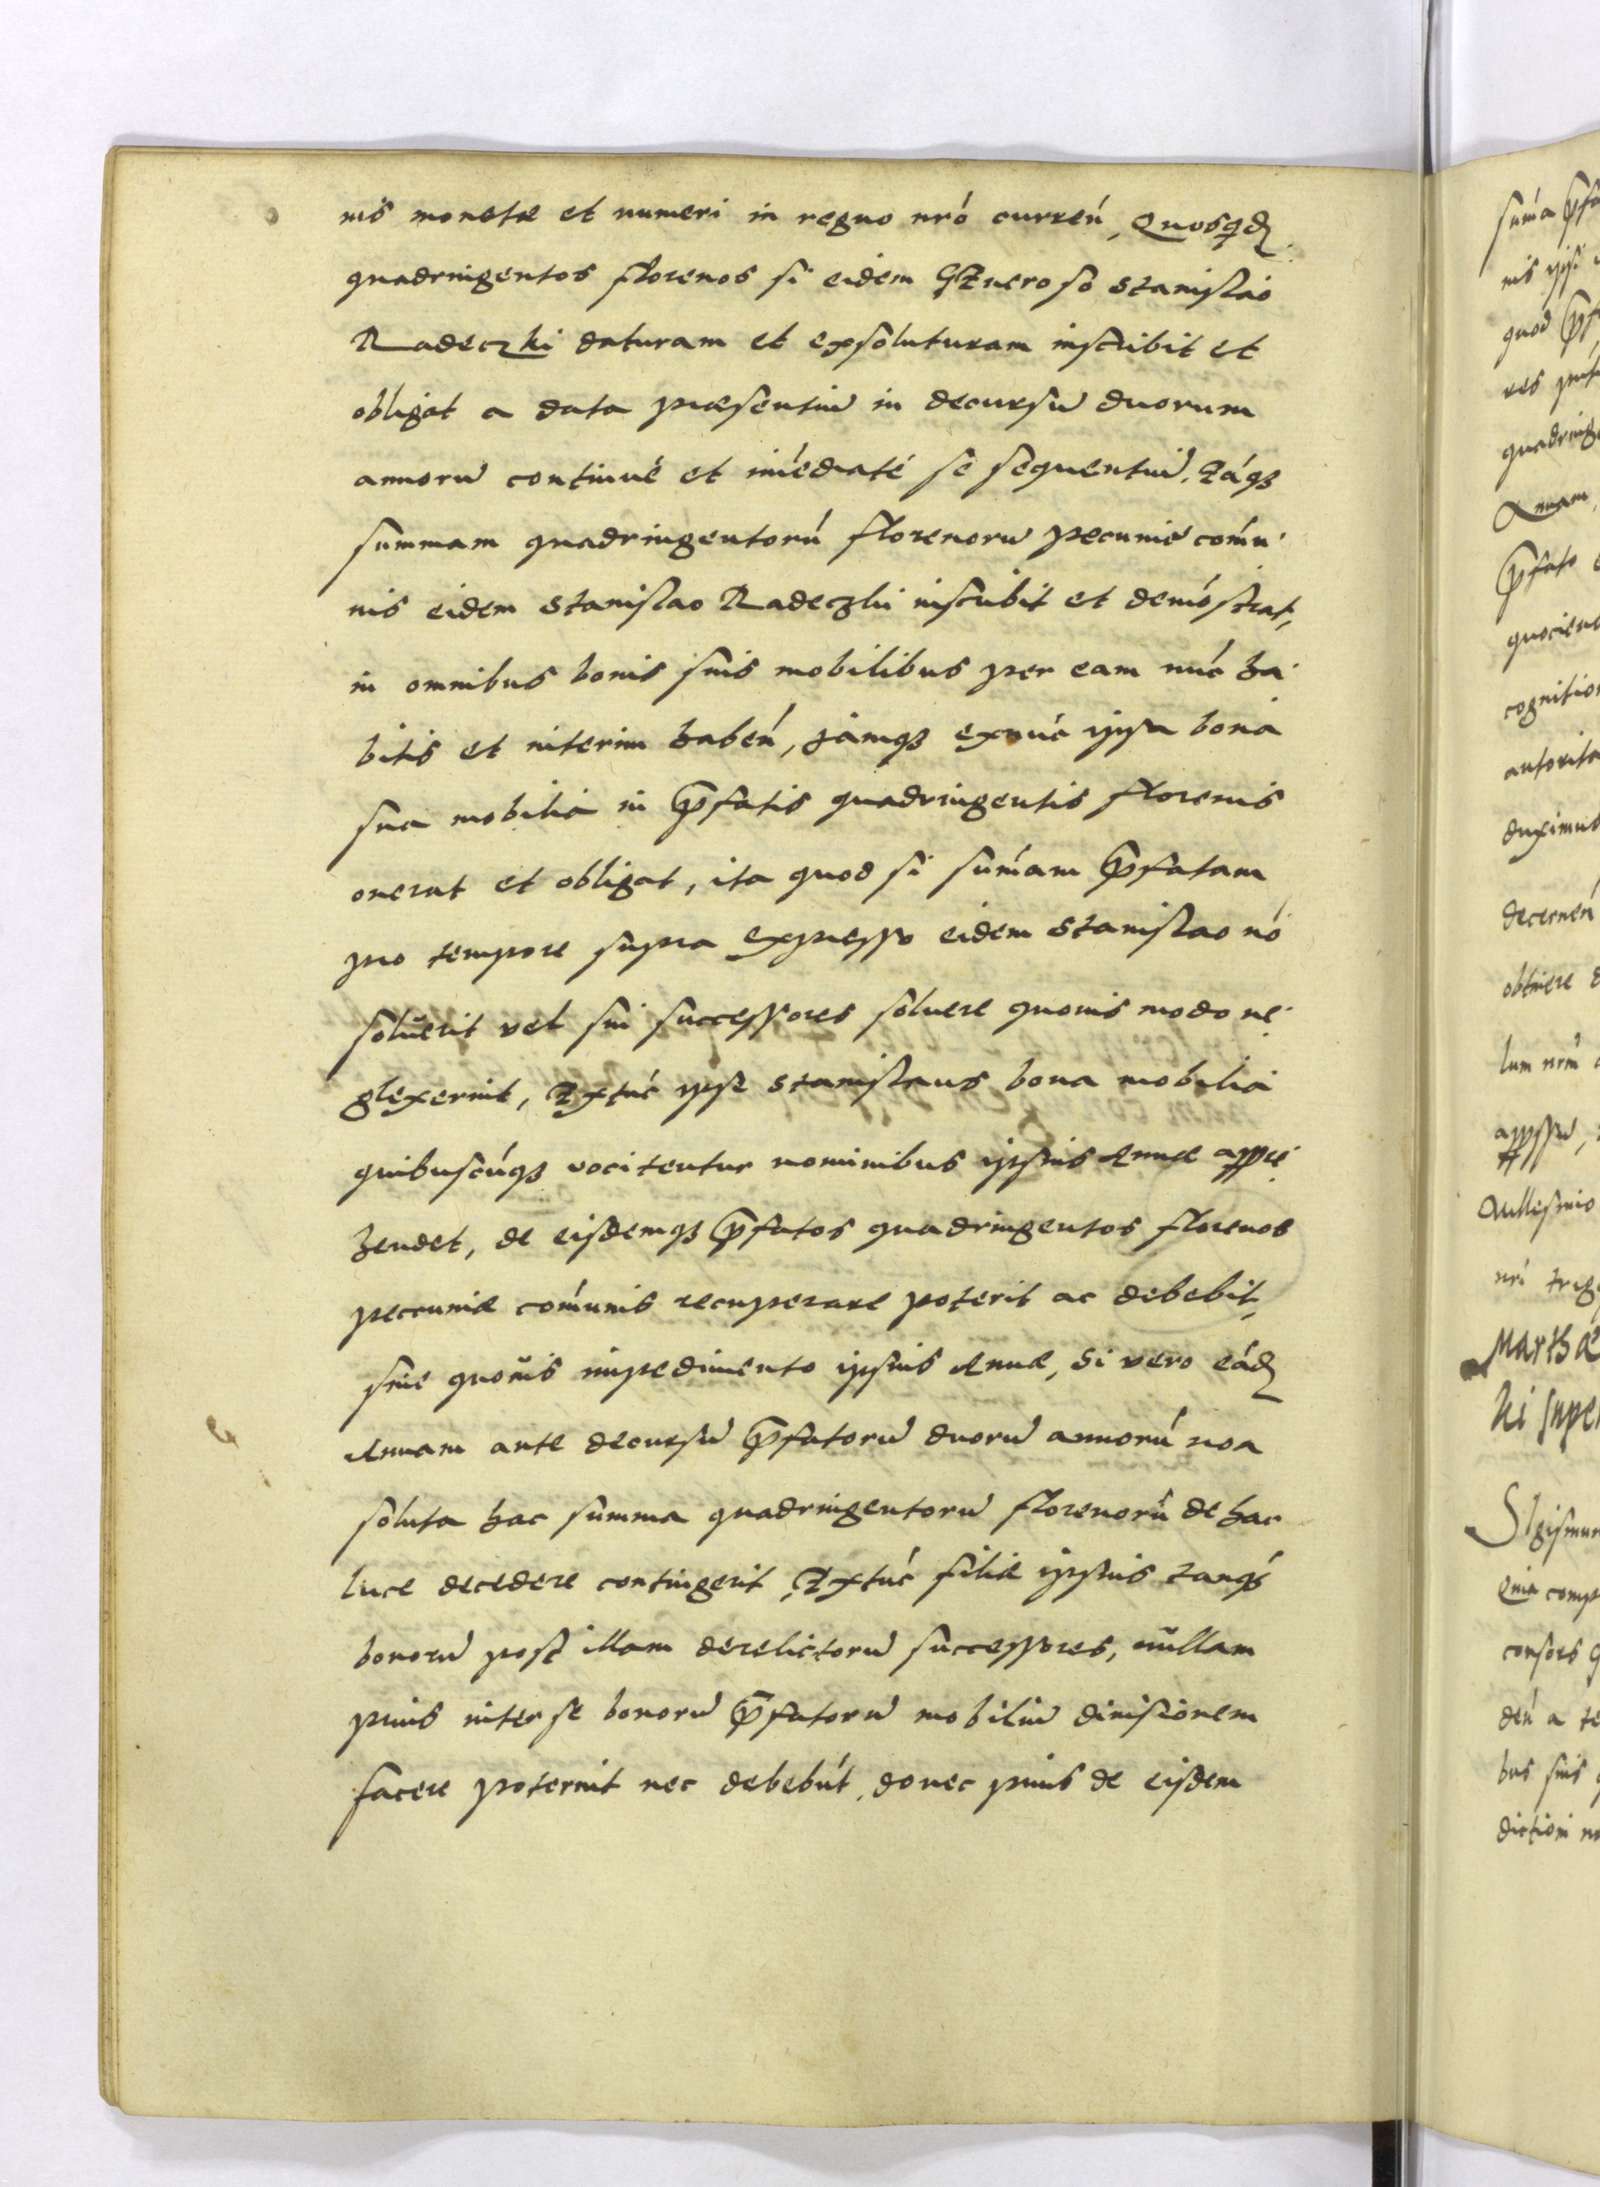 nis monetæ et numeri in regno nrō curreń, Quosq̃dẽ
quadringentos florenos si eidem Generoso Stanislao
Radeczki daturam et exsoluturam inscribit et
obligat a data præsentiũ in decursu duorum
annorũ continué et iḿediaté se sequentiũ. Eáq3
summam quadringentorú florenorũ pecuniæ comú
nis eidem Stanislao Radeczki inscribit et demóstrat,
in omnibus bonis suis mobilibus per eam núc ha
bitis et interim habeń, jamq3 exnúc ipsa bona
sua mobilia in p̃fatis quadringentis florenis
onerat et obligat, ita quod si suḿam p̃fatam
pro tempore supra expresso eidem Stanislao nó
soluerit vel sui successores soluere quouis modo ne
glexerint, Extúc ipse Stanislaus bona mobilia
quibuscúq3 vocitentur nominibus ipsius Annæ appre
hendet, de eisdemq3 p̃fatos quadringentos florenos
peccuniæ coḿunis recuperare poterit ac debebit,
sine quouis impedimento ipsius Annæ, Si vero eádẽ
Annam ante decursũ p̃fatorũ duorũ annorú non
soluta hac summa quadringentorũ florenorũ de hac
luce decedere contingerit, Extúc filiæ ipsius tanq́3
bonorũ post illam derelictorũ successores, nullam
prius inter se bonorũ p̃fatorũ mobiliũ diuisionem
facere poterint nec debebút, donec prius de eisdem
suḿa p̃fa
nis ipsi
quod p̃f
res
quadringe
Annam,
p̃fato
quociens
cognition
autorita
duximus
decerneń
obtinere
lum nrḿ
appssũ,
nri trig
Marthæ
ki super
Sigismun
Quia comp
consors
deń a te
bus suis
diction